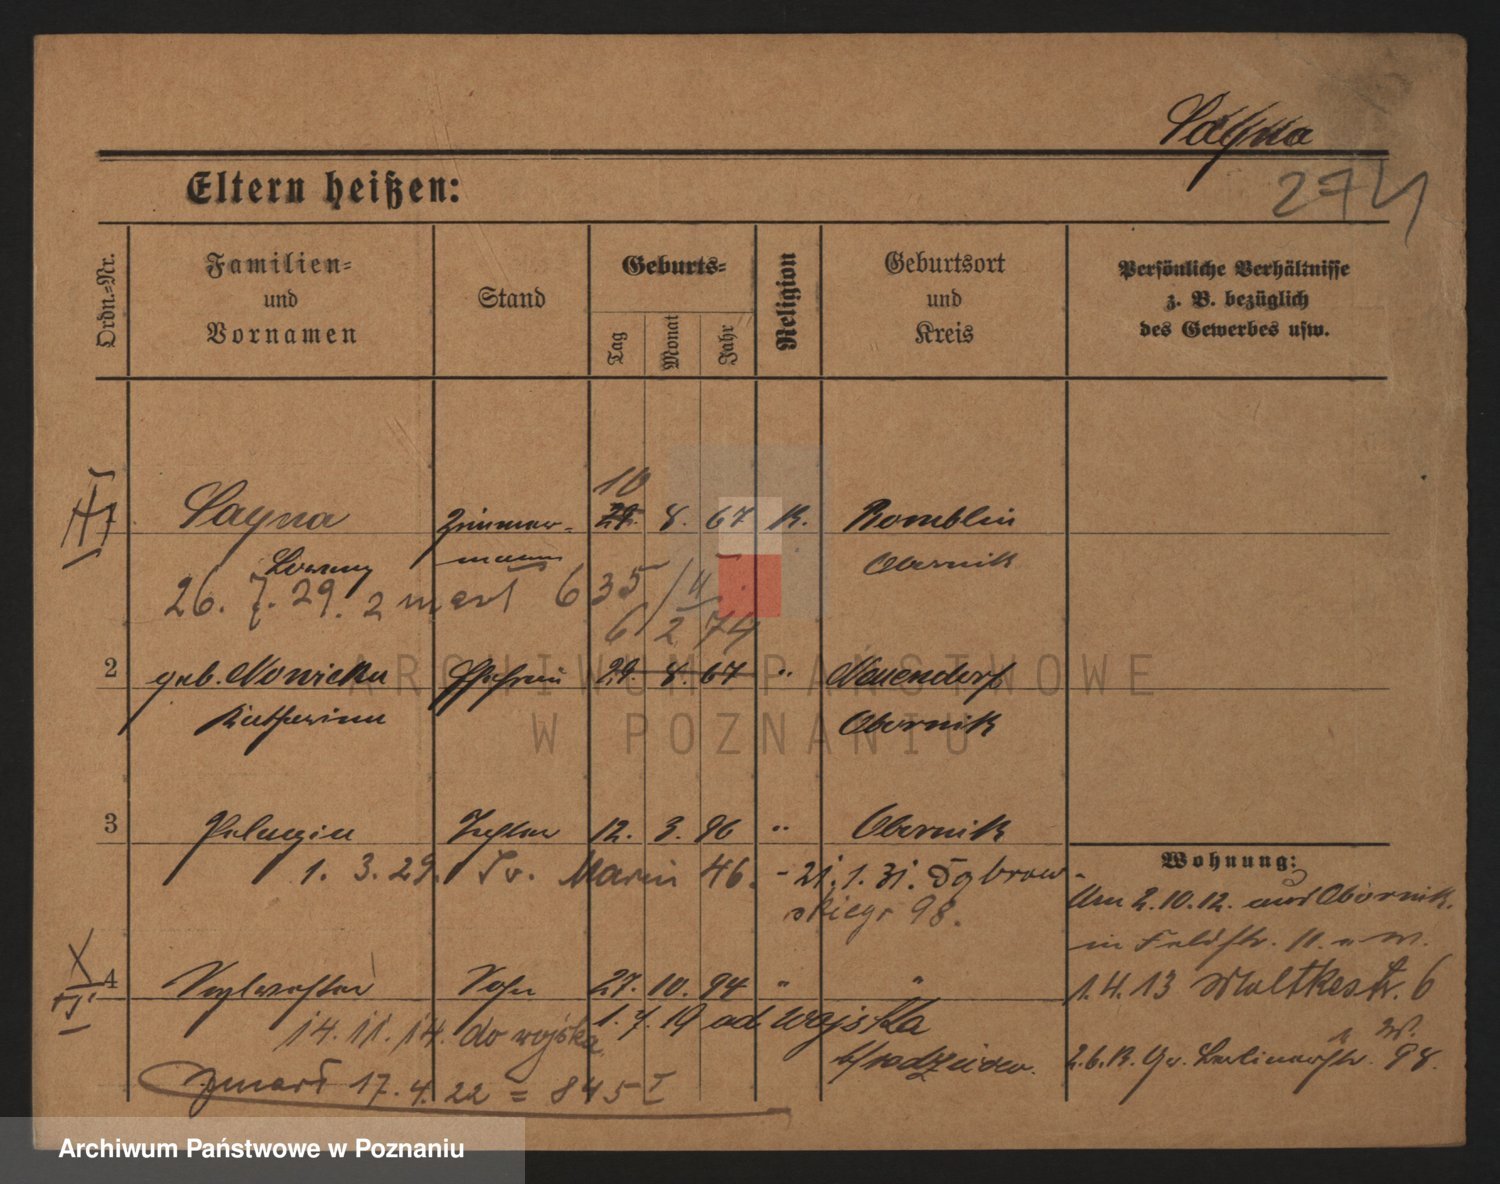 Sayna
274
Eltern heißen:
Ordn.-Nr.
Familien-
und
Vornamen
Stand
Geburts-
Tag
Monat
Jahr
Religion
Geburtsort
und
Kreis
Persönliche Verhältnisse
z. B. bezüglich
des Gewerbes usw.
10
1 Sayna Zimmer- 29. 8. 67 K. Romblin
Lorenz mann Obornik
26. 7. 29. zmarł 635/II
6/2 74
2 geb. Nowicka Ehefrau 29. 8. 67 " Nauendorf
Katharina Obornik
3 Pelagia Tochter 12. 3. 96 " Obornik
1. 3. 29. Św. Marcin 46. - 21. 1. 31. Dąbrow-
skiego 98.
Wohnung:
Am 2.10.12. aus Obornik.
in Feldstr. 11. a W.
4 Sylvester Sohn 27. 10. 94 " "
1.4.13 Moltkestr. 6
14. 11. 14. do wojska
1. 7. 19 od wojska
a W.
Gr. Berlinerstr. 98.
zmarł 17. 4. 22 = 845 I
ARCHIWUM PAŃSTWOWE
W POZNANIU
Archiwum Państwowe w Poznaniu